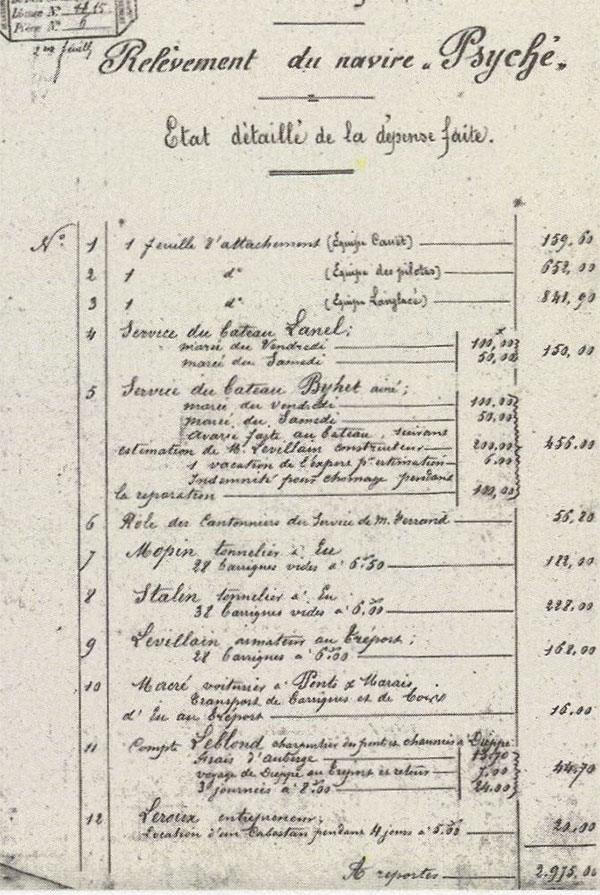 Liasse N° 4815
Pièce N° 6
2me feuille
Relèvement du navire „Psyché„
Etat détaillé de la dépense faite.
N° 1 1 feuille d'attachement (Equipe Canet) 159,60
2 1 d° (Equipe des pilotes) 652,00
3 1 d° (Equipe Langlacé) 841,90
4 Service du bateau Lanel;
marée du Vendredi 100,00
marée du Samedi 50,00 150,00
5 Service du bateau Byhet ainé;
marée du vendredi 100,00
marée du Samedi 50,00
avarie faite au bateau, suivant
estimation de M. Levillain constructeur 200,00 456.00
1 vacation de l'expert pr estimation 6.00
Indemnité pour chomage pendant
la reparation 100,00
6 Rôle des Cantonniers du Service de M. Ferrand 56,20
7 Mopin tonnelier à Eu
28 barriques vides à 6.50 182,00
8 Stalin tonnelier à Eu
38 barriques vides à 6,00 228.00
9 Levillain armateur au Tréport;
28 barriques à 6.00 168.00
10 Macré voiturier à Ponts & Marais
Transport de barriques et de bois
d'Eu au Tréport 16.00
11 Compte Leblond charpentier des ponts et chaussées à Dieppe
Frais d'auberge 13.70
voyage de Dieppe au Tréport et retour 7.00 44,70
3 journées à 8.00 24.00
12 Leroux entrepreneur;
Location d'un Cabestan pendant 4 jours à 5.00 20.00
A reporter 2.975.00